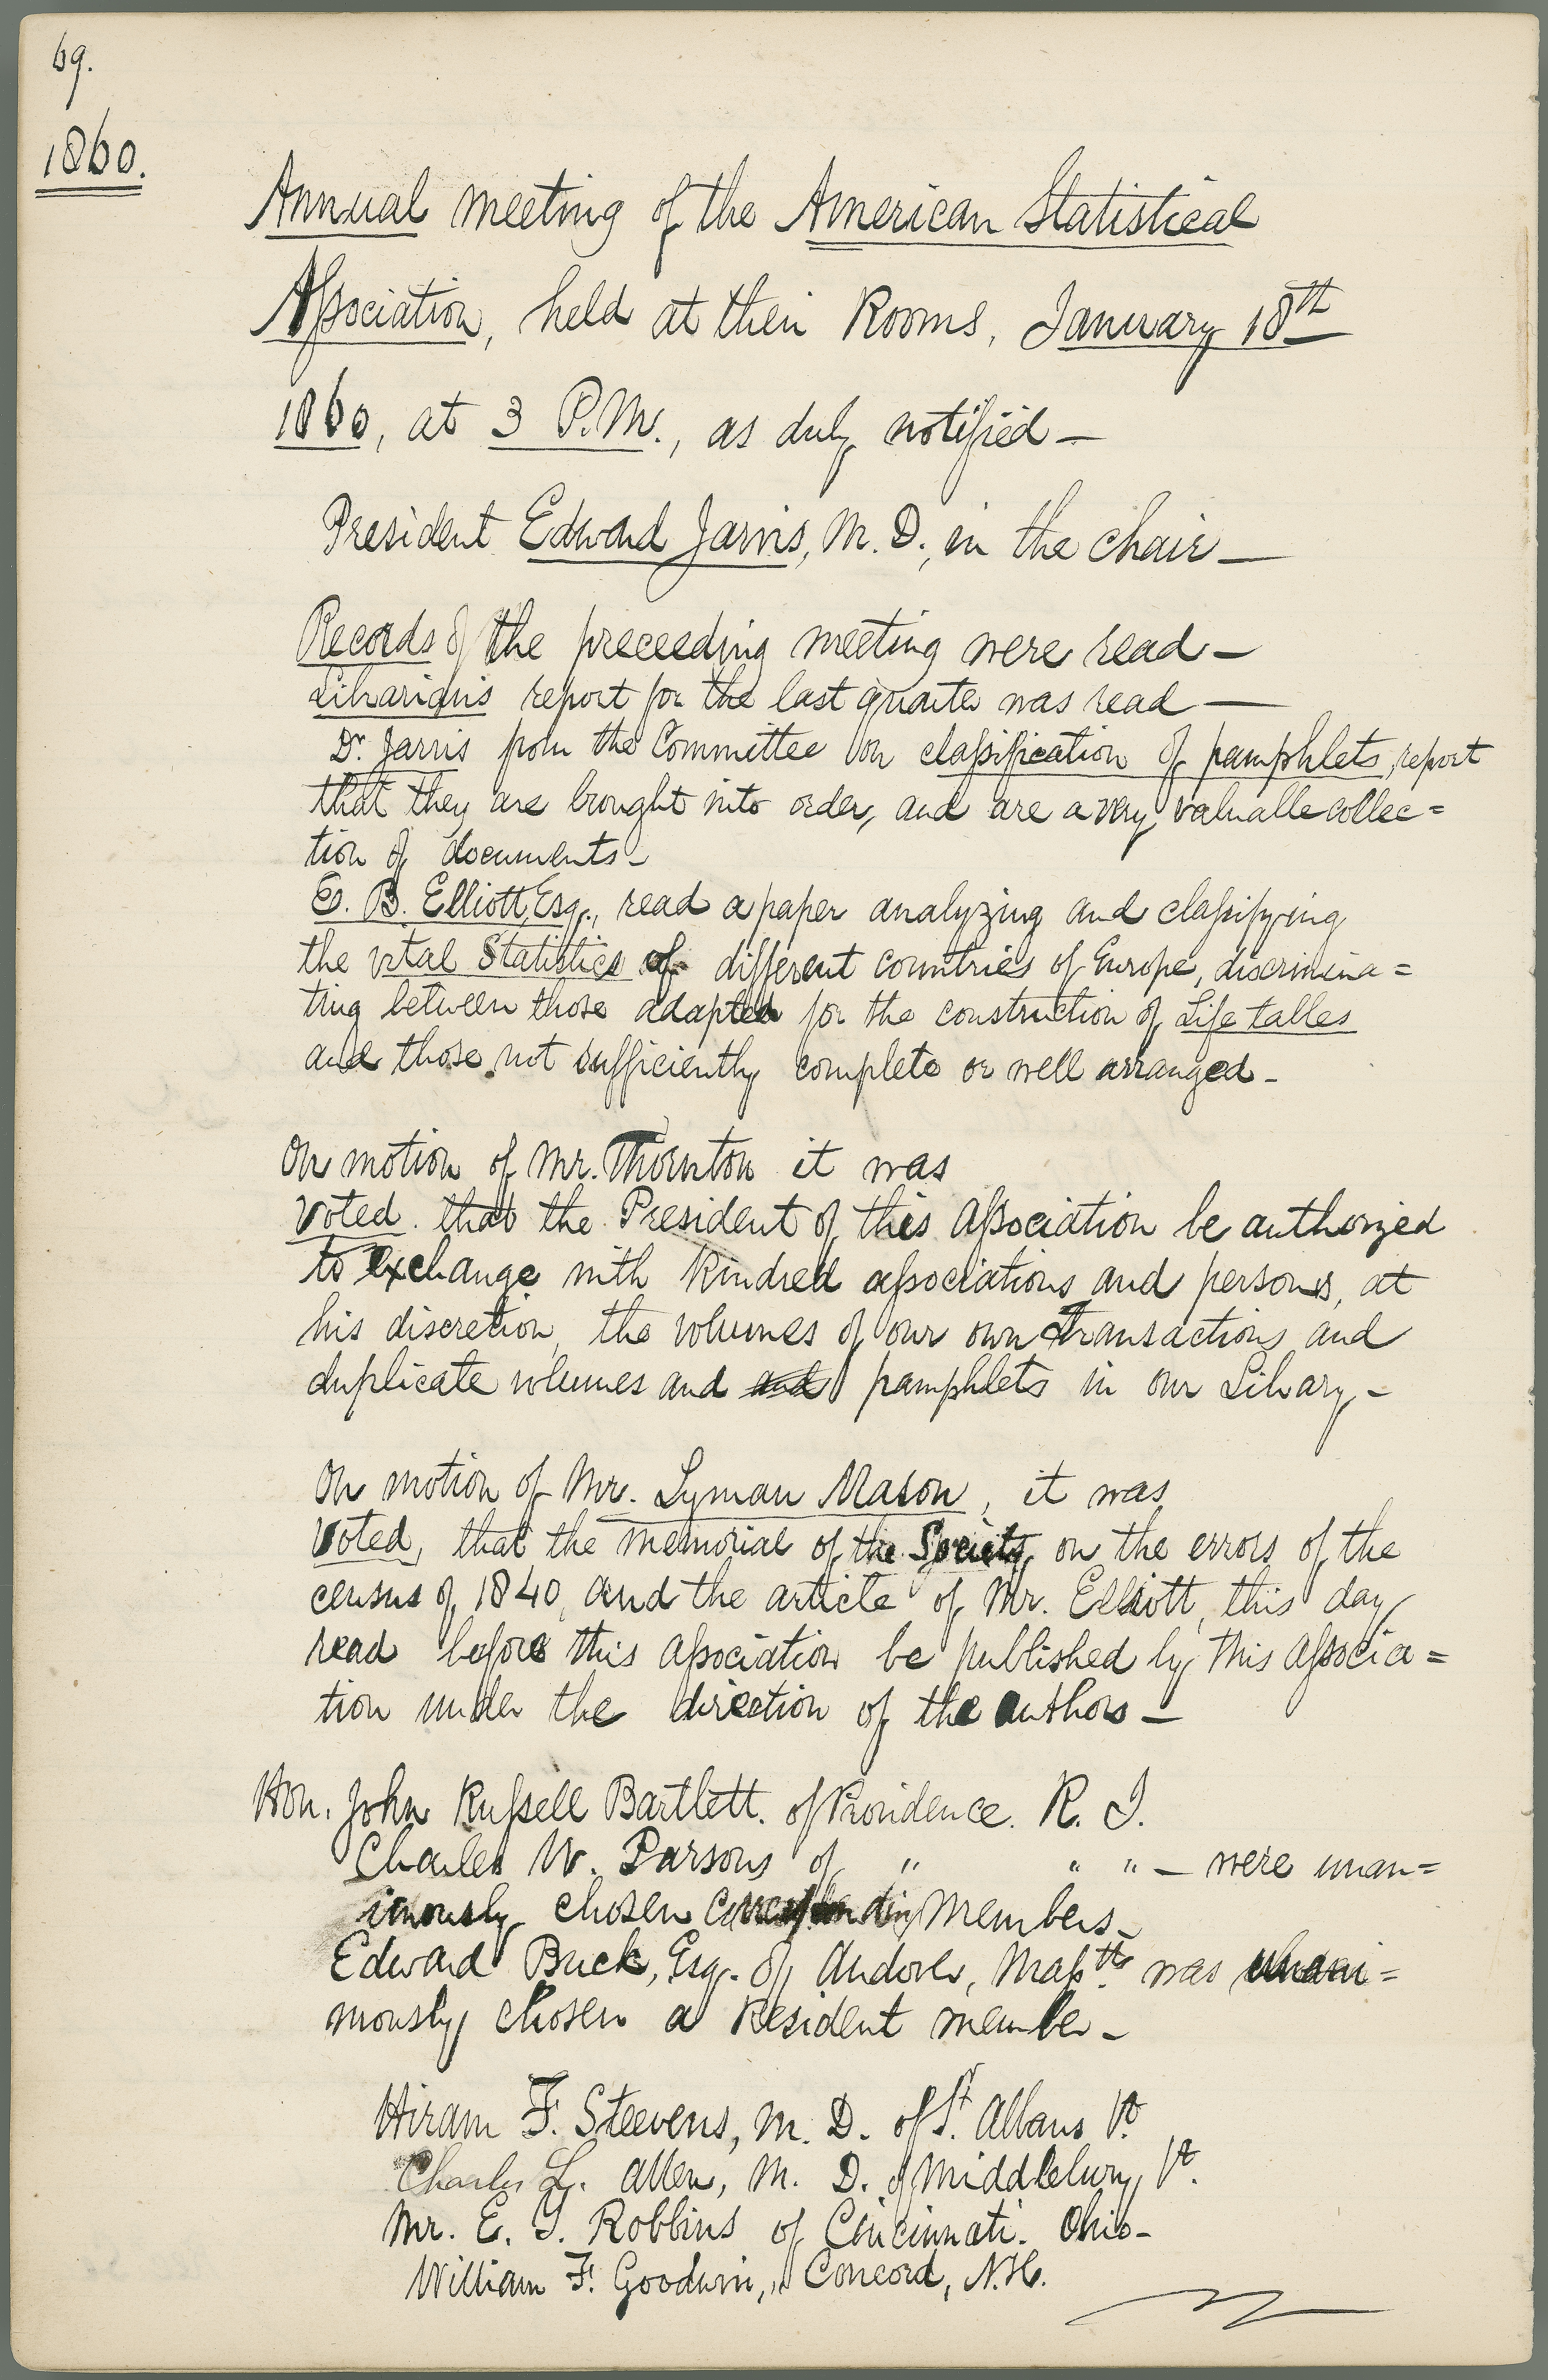 69.
1860.
Annual meeting of the American Statistical
Association, held at their Rooms, January 18th
1860, at 3 P.M., as duly notified —
President Edward Jarvis, M. D., in the chair —
Records of the preceeding meeting were read —
Librarian's report for the last quarter was read —
Dr. Jarvis from the Committee on classification of pamphlets, report
that they are brought into order, and are a very valuable collec=
tion of documents —
E. B. Elliott, Esq., read a paper analyzing and classifying
the vital Statistics of different countries of Europe, discrimina=
ting between those adapted for the construction of Life tables
and those not sufficiently complete or well arranged —
On motion of Mr. Thornton it was
Voted. that the President of this Association be authorized
to exchange with kindred associations and persons, at
his discretion, the volumes of our own Transactions and
duplicate volumes and and pamphlets in our Library. —
On motion of Mr. Lyman Mason, it was
Voted, that the memorial of the Society on the errors of the
census of 1840, and the article of Mr. Elliott, this day
read before this Association be published by this Associa=
tion under the direction of the authors —
Hon. John Russell Bartlett. of Providence. R. I.
Charles W. Parsons of " " " — were unan=
imously chosen Corresponding Members —
Edward Buck, Esq. of Andover, Massts. was unani=
mously chosen a Resident member —
Hiram F. Steevens, M. D. of St. Albans Vt.
Charles L. Allen, M. D. of Middlebury, Vt.
Mr. E. Y. Robbins of Cincinnati. Ohio —
William F. Goodwin, " Concord, N.H.